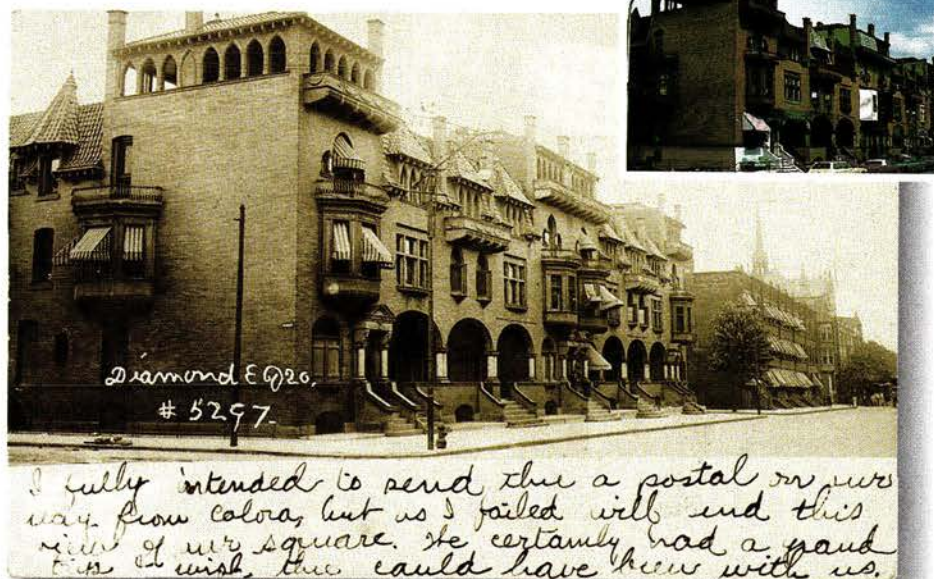 Diamond E @ 20.
# 5297.
I fully intended to send thee a postal on our
way from colora, but as I failed will send this
view of our square. We certainly had a grand
trip I wish thee could have been with us.